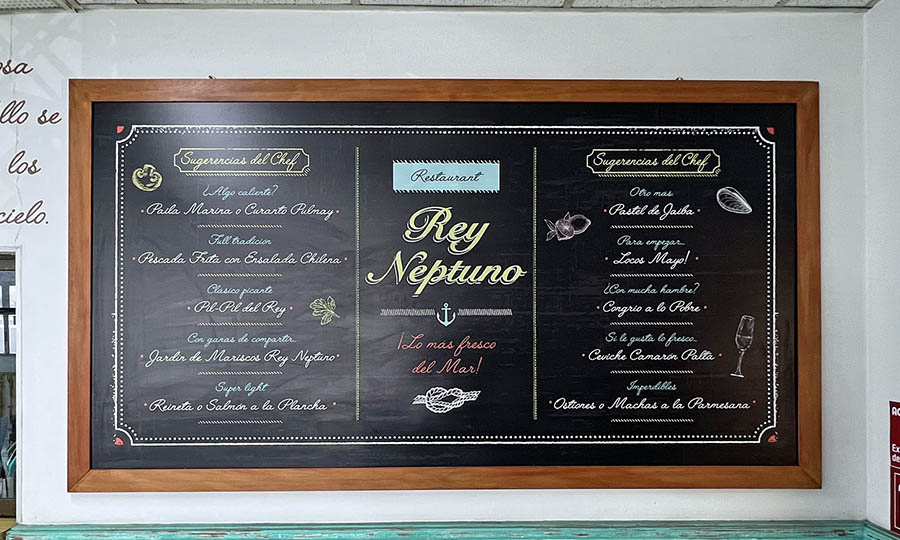 osa
llo se
los
cielo.
Sugerencias del Chef
¿Algo caliente?
Paila Marina o Curanto Pulmay
Full tradicion
Pescada Frita con Ensalada Chilena
Clasico picante
Pil-Pil del Rey
Con ganas de compartir...
Jardin de Mariscos Rey Neptuno
Super light
Reineta o Salmón a la Plancha
Restaurant
Rey
Neptuno
¡Lo más fresco
del Mar!
Sugerencias del Chef
Otro mas
Pastel de Jaiba
Para empezar...
Locos Mayo!
¿Con mucha hambre?
Congrio a lo Pobre
Si le gusta lo fresco...
Ceviche Camarón Palta
Imperdibles
Ostiones o Machas a la Parmesana